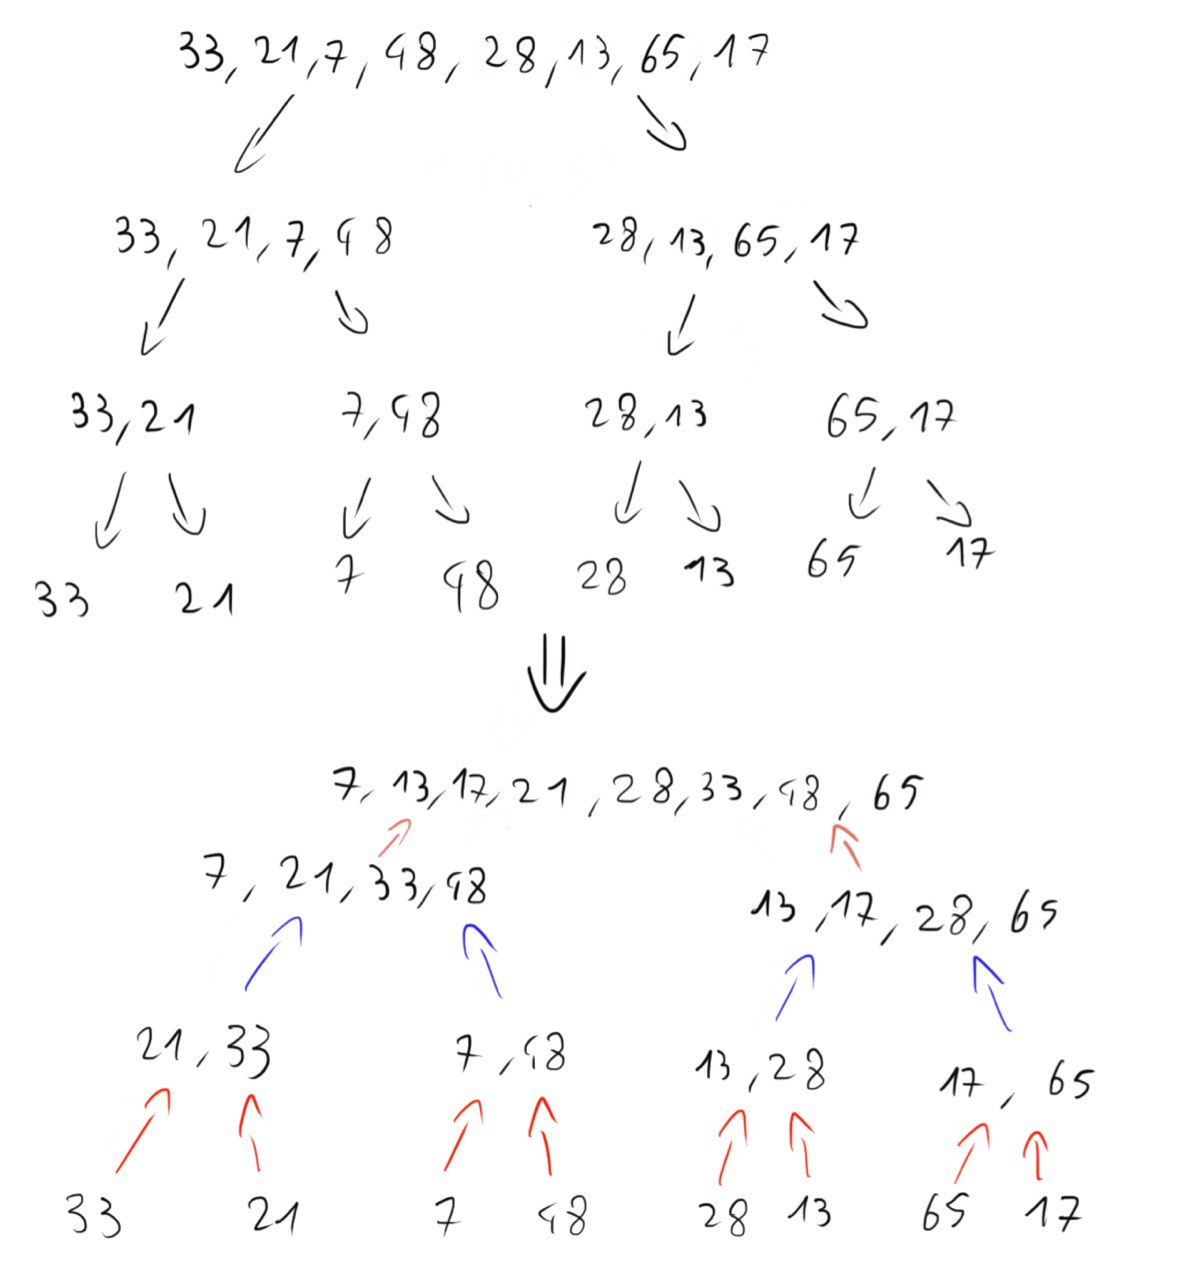 33, 21, 7, 48, 28, 13, 65, 17
33, 21, 7, 48 28, 13, 65, 17
33, 21 7, 48 28, 13 65, 17
33 21 7 48 28 13 65 17
7, 13, 17, 21, 28, 33, 48, 65
7, 21, 33, 48 13, 17, 28, 65
21, 33 7, 48 13, 28 17, 65
33 21 7 48 28 13 65 17